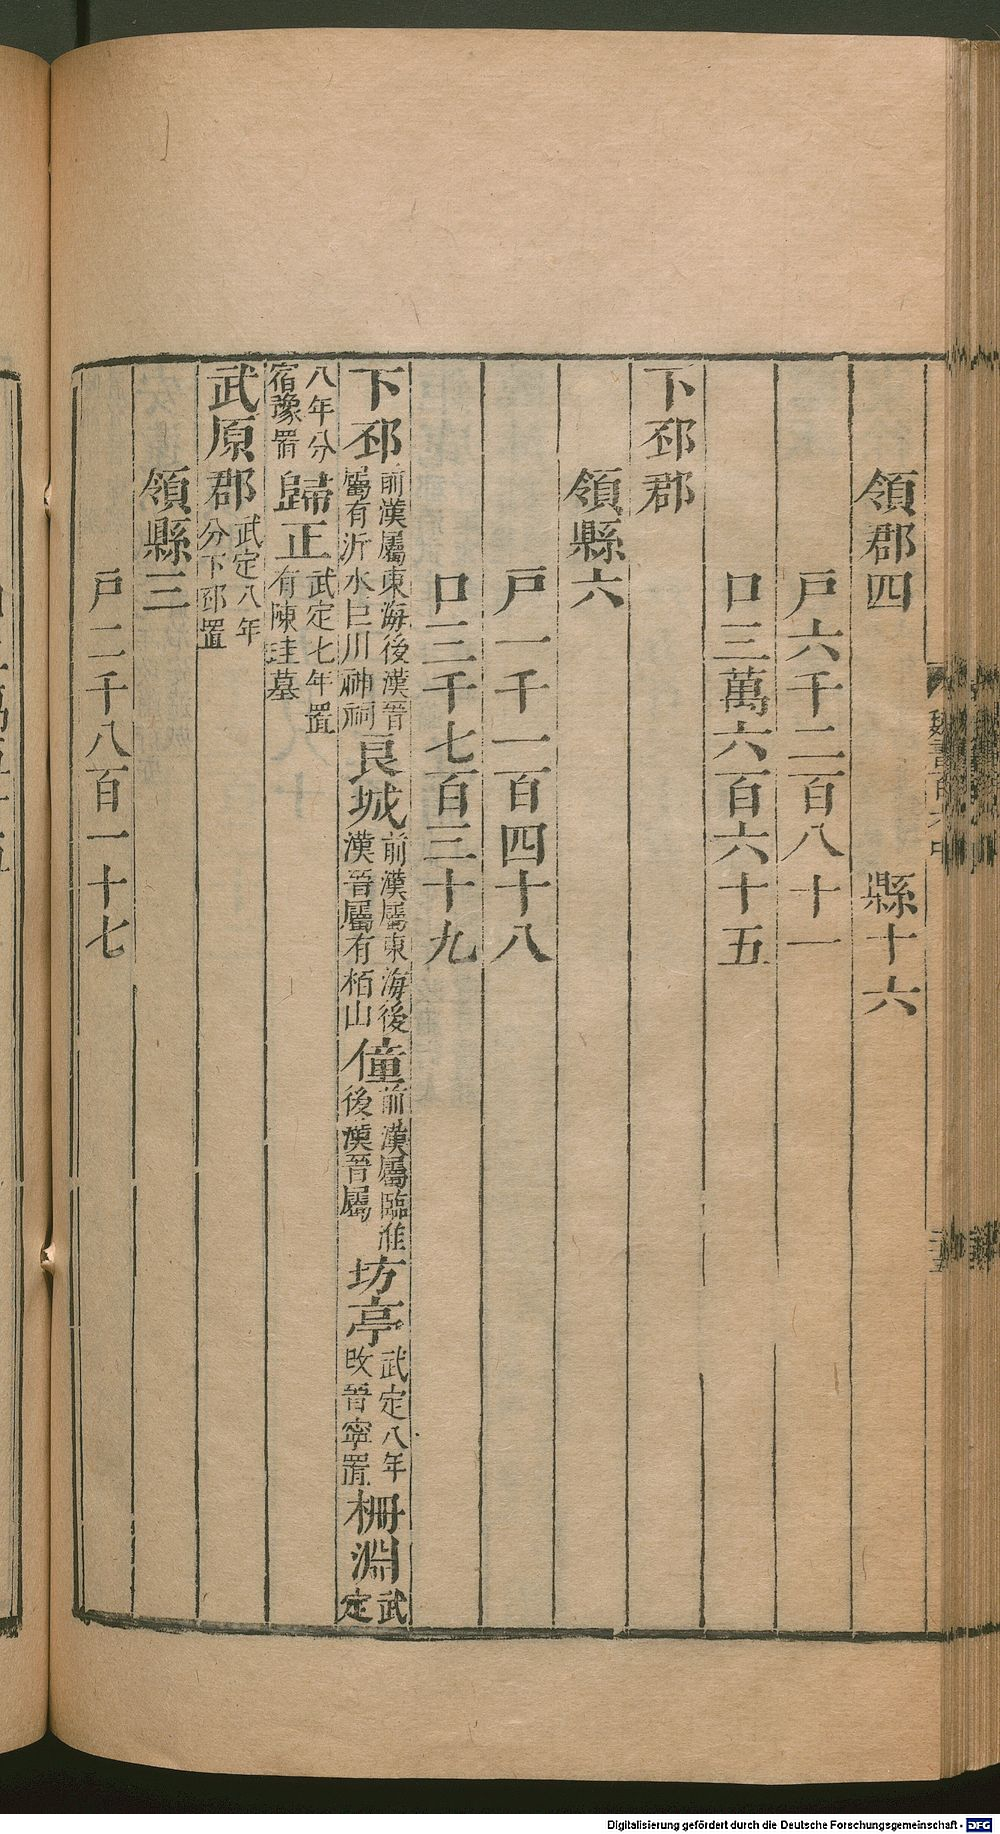 領郡四　縣十六
戶六千二百八十一
口三萬六百六十五
下邳郡
領縣六
戶一千一百四十八
口三千七百三十九
下邳前漢屬東海後漢晉屬有沂水巨川神祠良城前漢屬東海後漢晉屬有栢山僮前漢屬臨淮後漢晉屬坊亭武定八年改晉寧置柵淵武定
八年分宿豫置歸正武定七年置有陳珪墓
武原郡武定八年分下邳置
領縣三
戶二千八百一十七
Digitalisierung gefördert durch die Deutsche Forschungsgemeinschaft - DFG